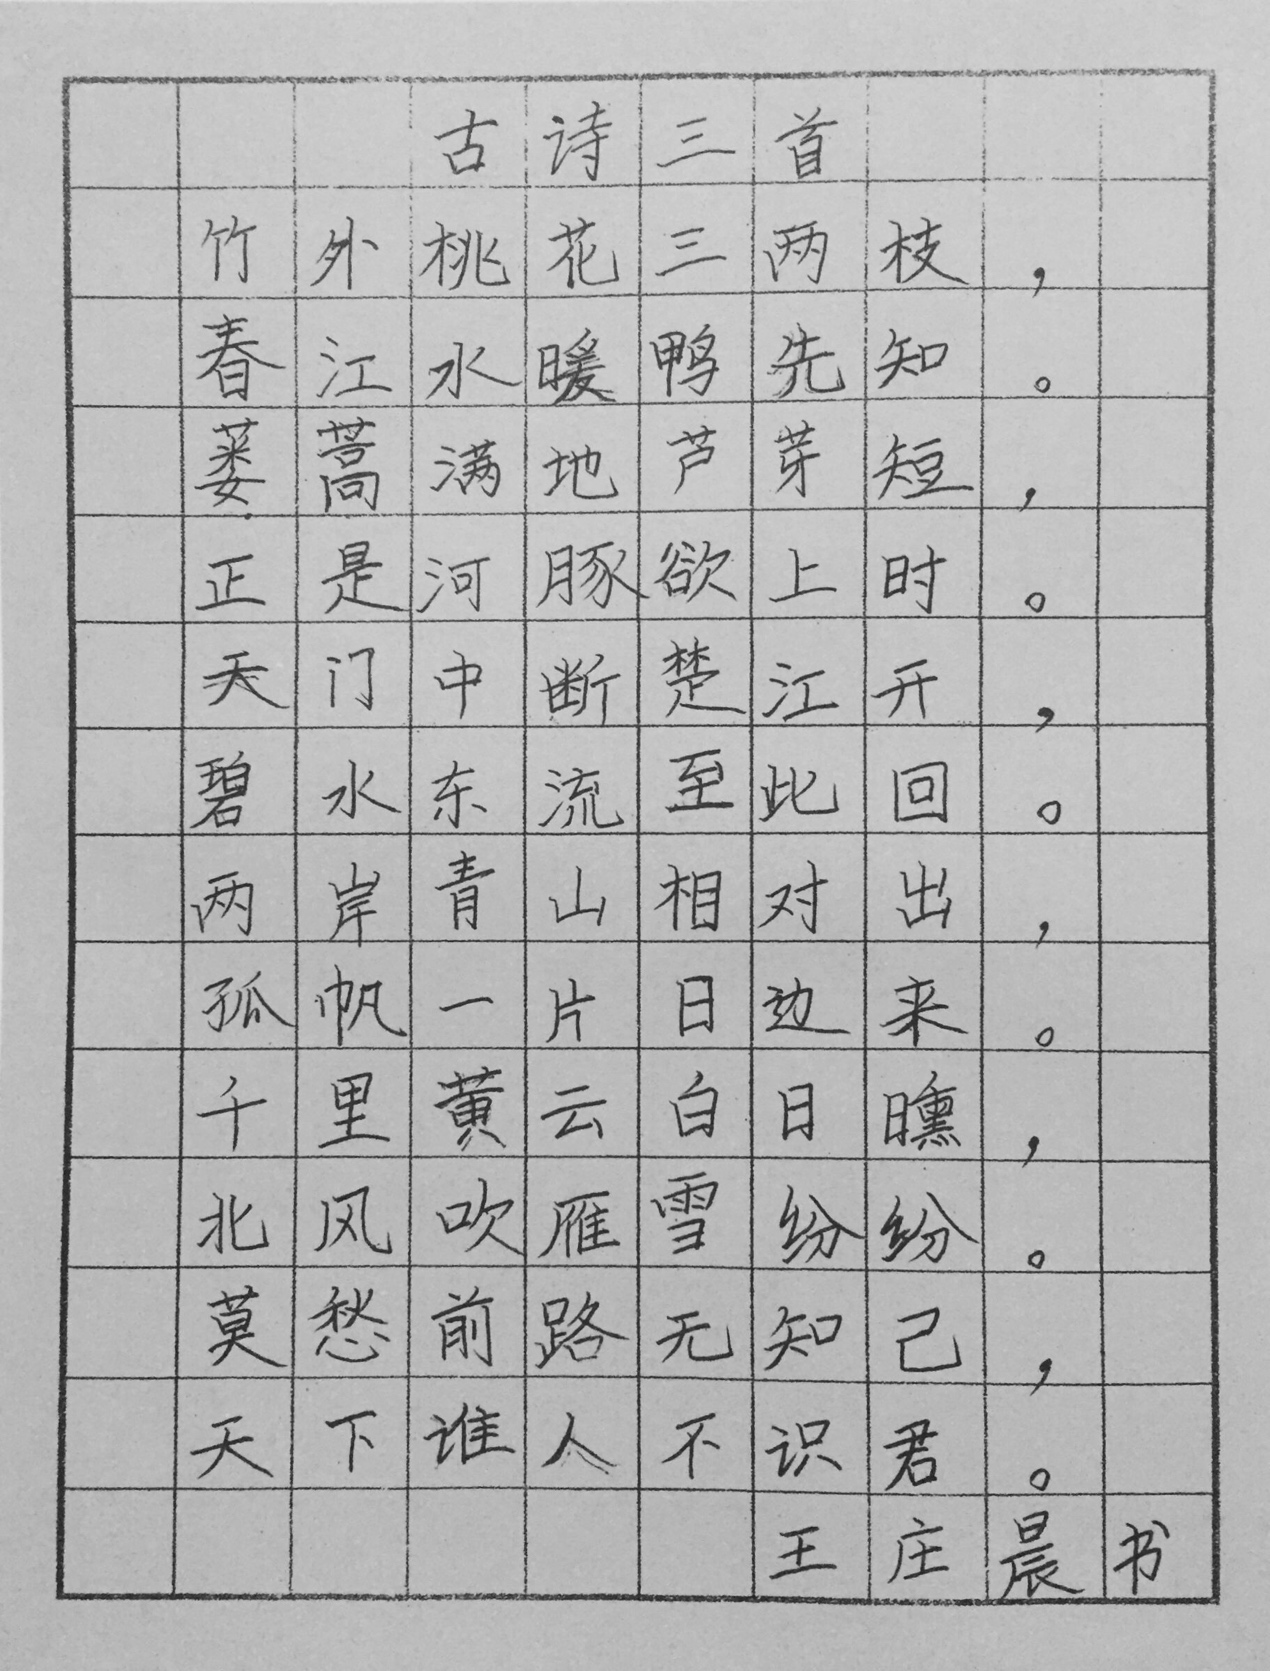 古诗三首
竹外桃花三两枝，
春江水暖鸭先知。
蒌蒿满地芦芽短，
正是河豚欲上时。
天门中断楚江开，
碧水东流至此回。
两岸青山相对出，
孤帆一片日边来。
千里黄云白日曛，
北风吹雁雪纷纷。
莫愁前路无知己，
天下谁人不识君。
王庄晨书